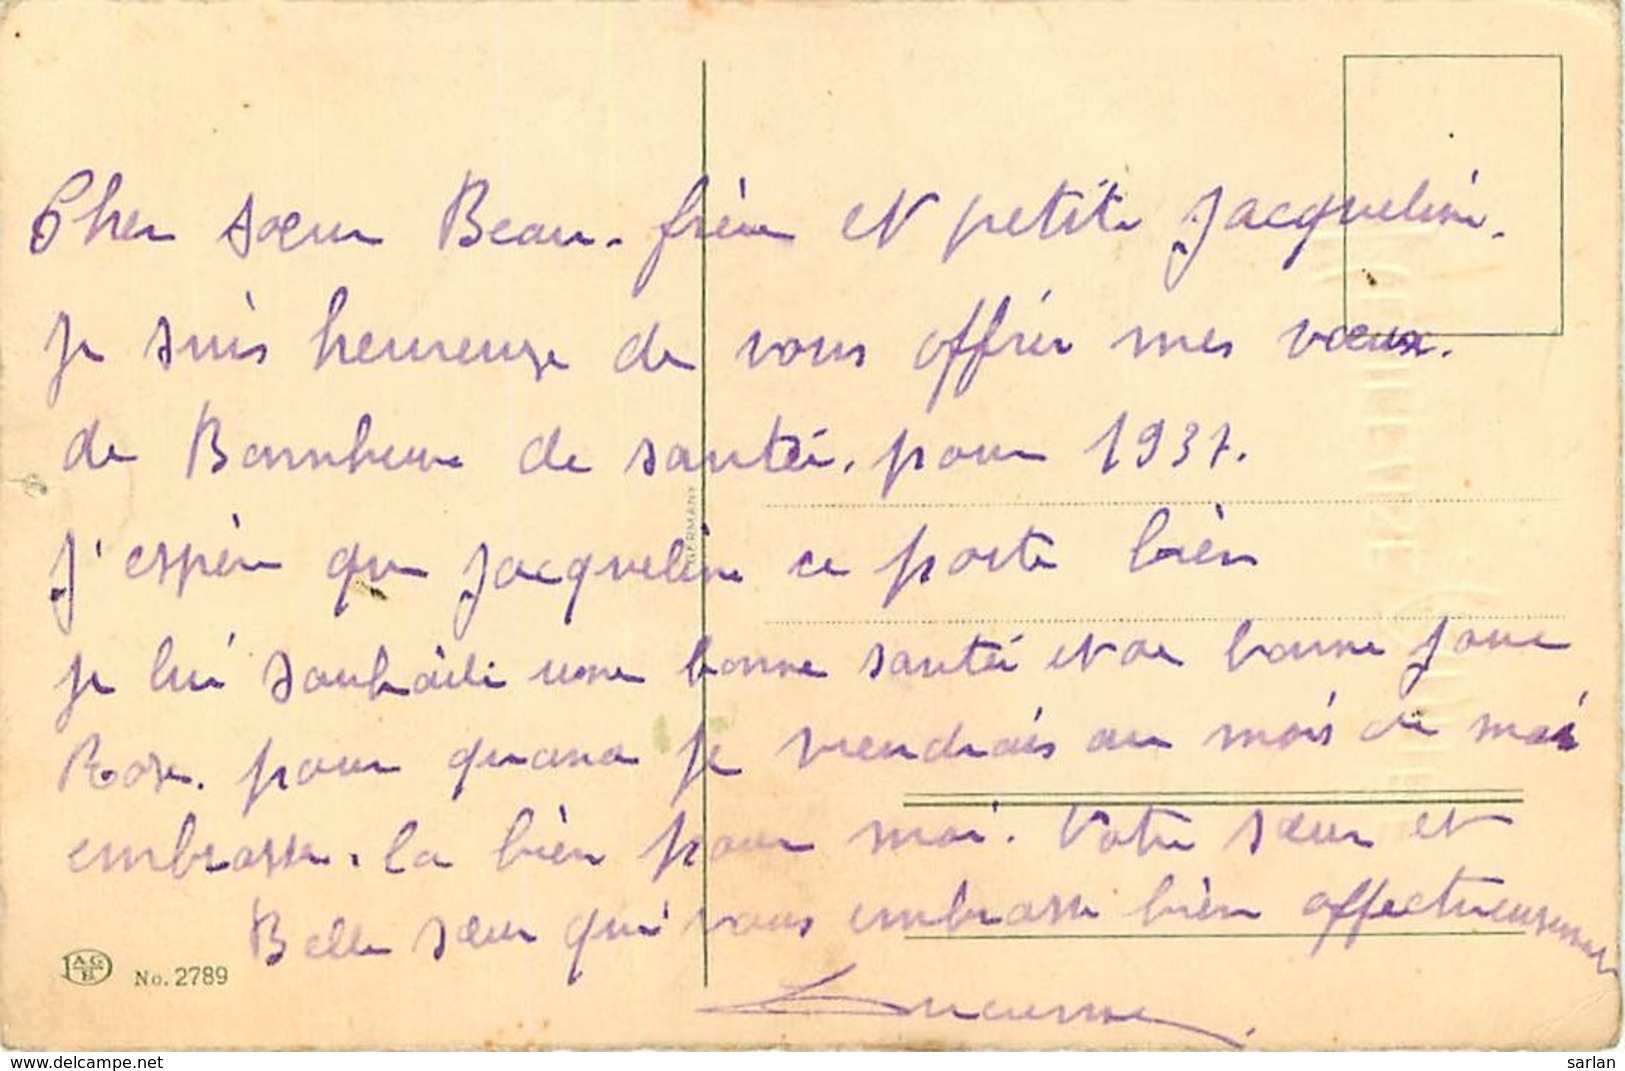 Cher sœur Beau-frère et petite Jacqueline.
je suis heureuse de vous offrir mes vœux.
de Bonnheure de santéi. pour 1937.
GERMANY
J'espère que Jacqueline ce porte bien
je lui souhaite une bonne santéi et de bonne joue
Rose. pour quand je viendrais au mois de mai
embrasse. la bien pour moi. Votre sœur et
Belle sœur qui vous embrasse bien affectueusement
Lucienne.
AG B No. 2789
www.delcampe.net
sarlan